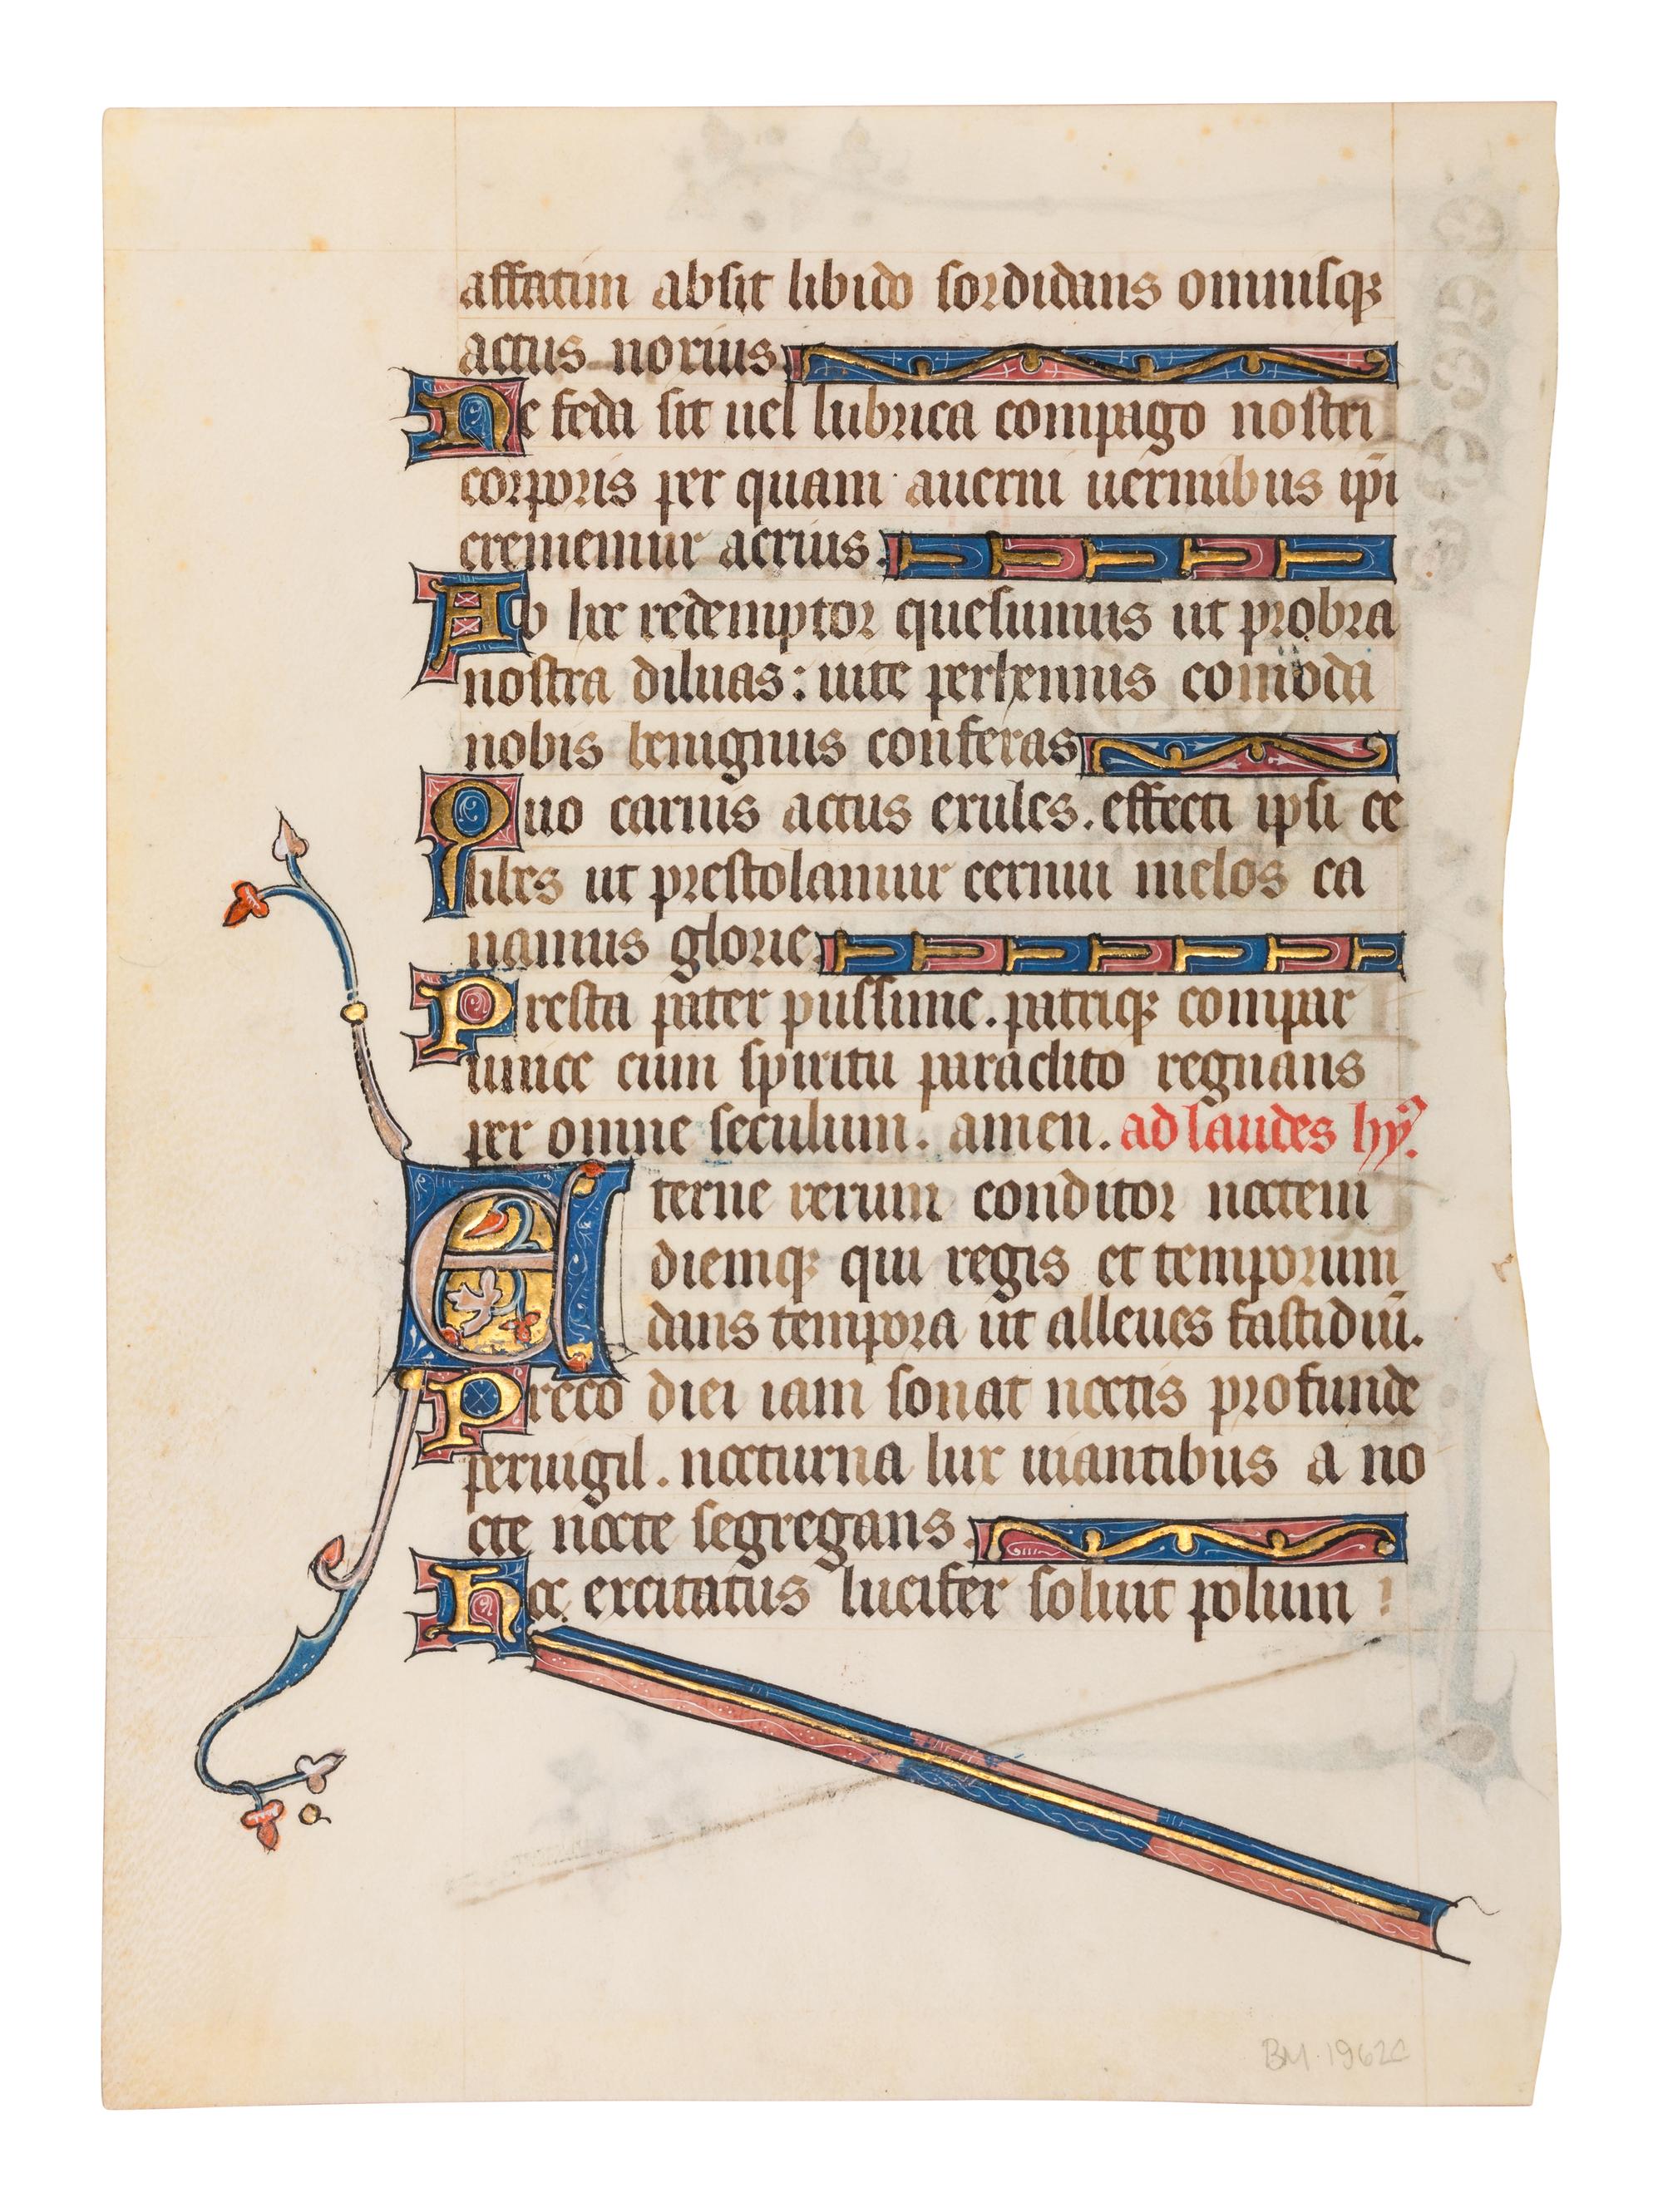 affatim absit libido sordidans omnisq;
actus noxius.
Ne feda sit uel lubrica compago nostri
corporis per quam auerni ignibus ipi
crememur acrius.
Ab hoc redemptor quesumus ut probra
nostra diluas: uite perhennis comoda
nobis benignus conferas
Quo carnis actus exules. effecti ipsi ce
libes ut prestolamur cernui melos ca
namus glorie.
Presta pater piissime. patriq; compar
unice cum spiritu paraclito regnans
per omne seculum. amen. ad laudes hy̅.
Eterne rerum conditor noctem
diemq; qui regis et temporum
dans tempora ut alleues fastidiū.
Preco diei iam sonat noctis profunde
peruigil. nocturna lux uiantibus a no
cte nocte segregans.
Hoc excitatus lucifer soluit polum
BM.1962c